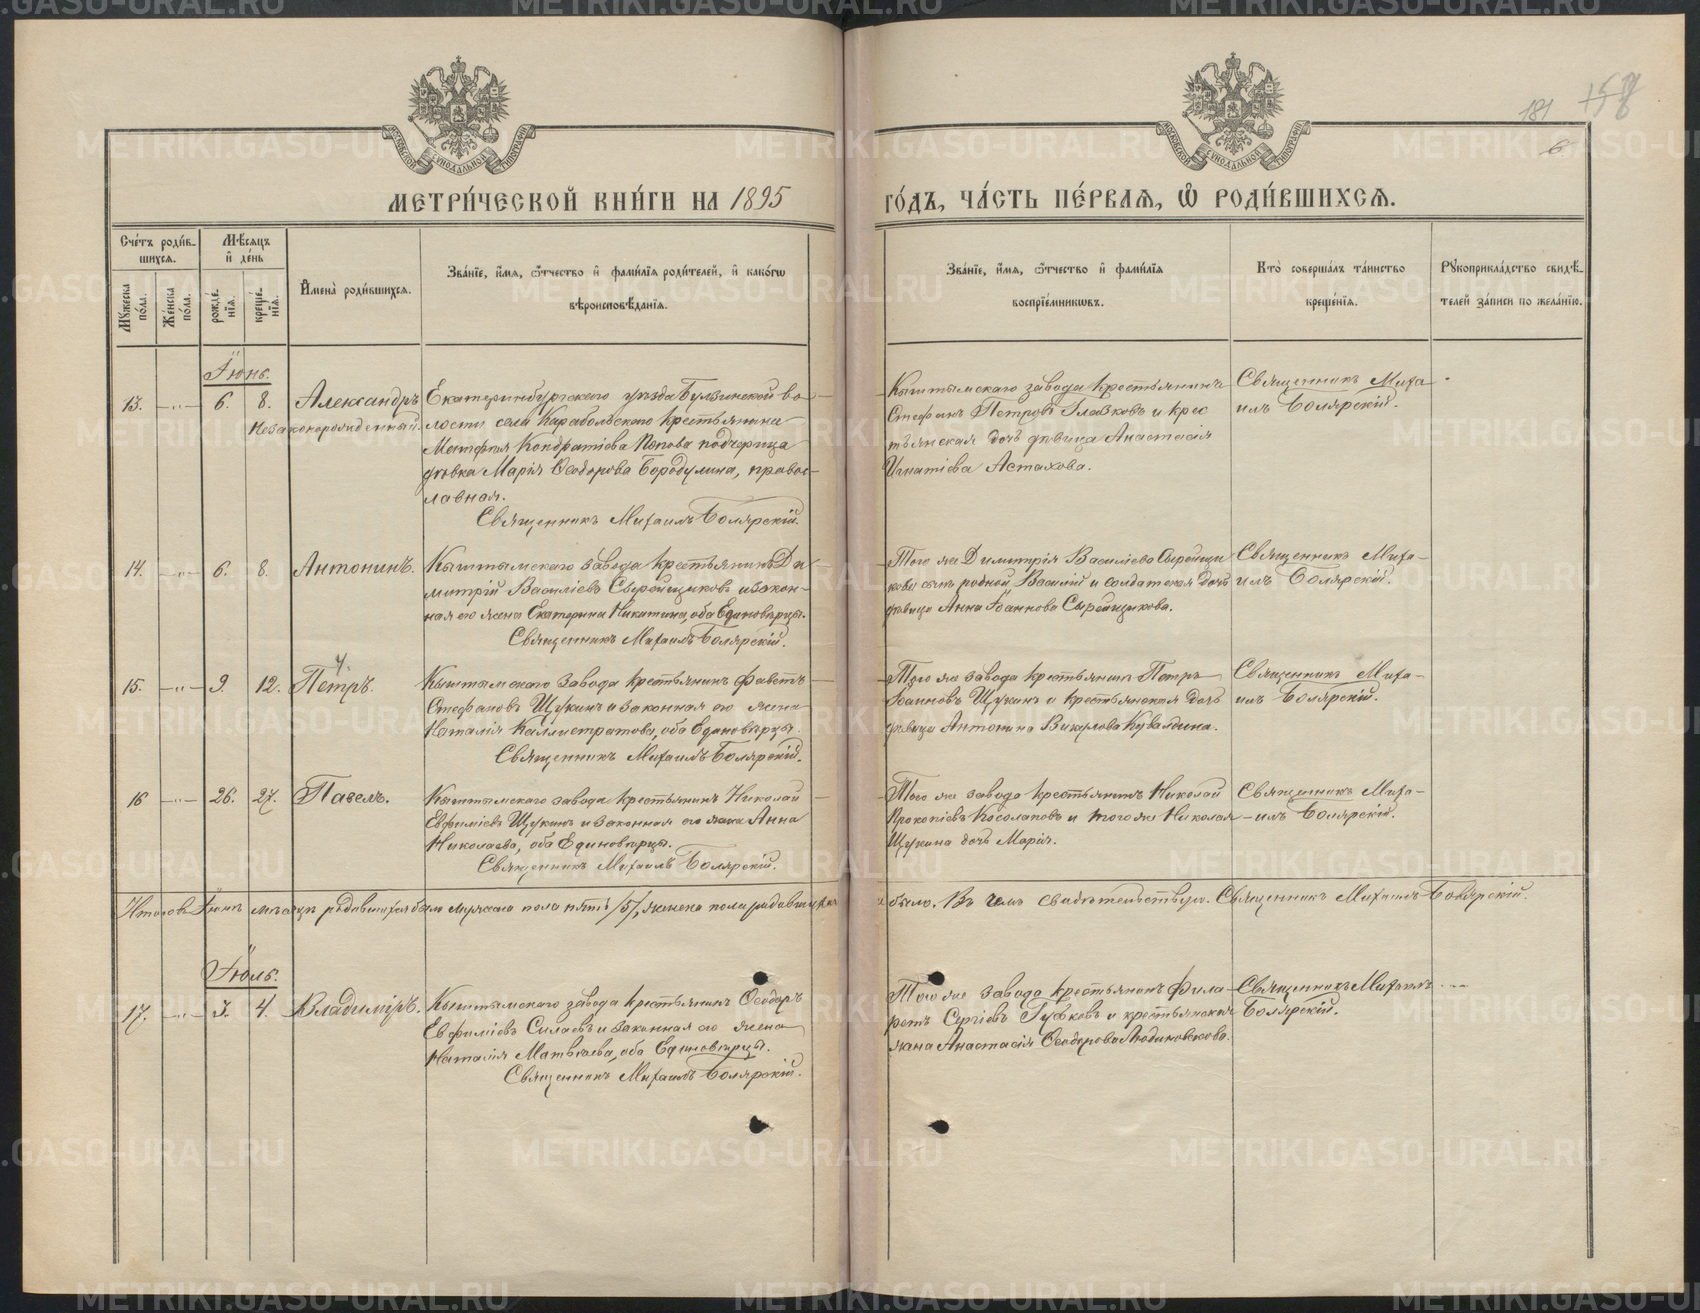 181 158
6
МОСКОВСКОЙ СѴНОДАЛЬНОЙ ТИПОГРАФІИ
МОСКОВСКОЙ СѴНОДАЛЬНОЙ ТИПОГРАФІИ
МЕТРИ́ЧЕСКОЙ КНИ́ГИ НА 1895 ГО́ДЪ, ЧА́СТЬ ПЕ́РВАѦ, Ѡ҆ РОДИ́ВШИХСѦ.
Сче́тъ роди́в-
шихсѧ.
Мꙋжеска по́ла.
Же́нска по́ла.
Мѣ́сѧцъ
и҆ де́нь
рожде́нїѧ.
креще́нїѧ.
И҆мена̀ роди́вшихсѧ.
Зва́нїе, и҆́мѧ, ѻ҆́тчество и҆ фами́лїѧ роди́телей, и҆ како́гѡ
вѣроисповѣ́данїѧ.
Зва́нїе, и҆́мѧ, ѻ҆́тчество и҆ фами́лїѧ
воспрїе́мникѡвъ.
Кто̀ соверша́лъ та́инство
креще́нїѧ.
Рꙋкоприкла́дство свидѣ́-
телей за́писи по жела́нїю.
Іюнь.
13. -„- 6. 8. Александръ
Незаконорожденный.
Екатеринбургскаго уѣзда Булзинской во-
лости села Карабольскаго крестьянина
Матфея Кондратіева Попова подчерица
дѣвка Марія Ѳеодорова Бородулина, правос-
лавная.
Священникъ Михаилъ Боярскій.
Кыштымскаго завода крестьянинъ
Стефанъ Петровъ Глазковъ и крес
тьянская дочь дѣвица Анастасія
Игнатіева Астахова.
Священникъ Миха
илъ Боярскій.
14. -„- 6. 8. Антонинъ.
Кыштымскаго завода крестьянинъ Ди
митрій Василіевъ Сырейщиковъ и закон-
ная его жена Екатерина Никитина, оба Единовѣрцы.
Священникъ Михаилъ Боярскій.
Того же Димитрія Василіева Сырейщи
кова сынъ родной Василій и солдатская дочь
дѣвица Анна Іоаннова Сырейщикова.
Священникъ Миха-
илъ Боярскій.
15. -„- 9. 12. Петръ.
Кыштымскаго завода крестьянинъ Фавстъ
Стефановъ Щукинъ и законная его жена
Наталія Каллистратова, оба Единовѣрцы.
Священникъ Михаилъ Боярскій.
Того же завода крестьянинъ Петръ
Іоанновъ Щукинъ и крестьянская дочь
дѣвица Антонина Викулова Кувалдина.
Священникъ Миха-
илъ Боярскій.
16 -„- 26. 27. Павелъ.
Кыштымскаго завода крестьянинъ Николай
Евфиміевъ Щукинъ и законная его жена Анна
Николаева, оба Единовѣрцы.
Священникъ Михаилъ Боярскій.
Того же завода крестьянинъ Николай
Прокопіевъ Косолаповъ и того же Николая
Щукина дочь Марія.
Священникъ Миха-
илъ Боярскій.
Итого въ Іюнѣ мѣсяцѣ родившихся было мужскаго пола пять /5/, женска пола родившихся не
было. Въ чемъ свидѣтельствую. Священникъ Михаилъ Боярскій.
Іюль.
17. -„- 3. 4. Владиміръ.
Кыштымскаго завода крестьянинъ Ѳеодоръ
Евфиміевъ Силаевъ и законная его жена
Наталія Матвѣева, оба Единовѣрцы.
Священникъ Михаилъ Боярскій.
Того же завода крестьянинъ Фила-
ретъ Сергіевъ Гузковъ и крестьянская
жена Анастасія Ѳеодорова Людиновскова.
Священникъ Михаилъ
Боярскій.
METRIKI.GASO-URAL.RU